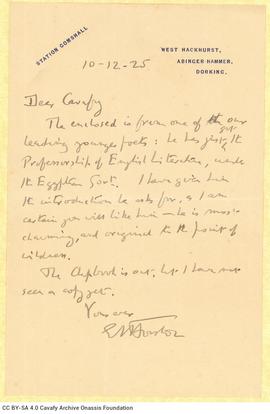 STATION GOMSHALL
WEST HACKHURST,
ABINGER HAMMER,
DORKING.
10-12-25
Dear Cavafy
The enclosed is from one of our
leading younger poets: he has just got the
Professorship of English Literature, under
the Egyptian Govt. I have given him
the introduction he asks for, as I am
certain you will like him — he is most
charming, and original to the point of
wildness.
The Chapbook is out, but I have not
seen a copy yet.
Yours ever
EMForster
CC BY-SA 4.0 Cavafy Archive Onassis Foundation